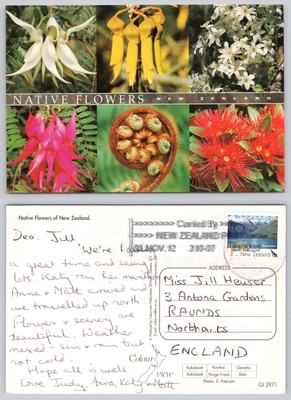 NATIVE FLOWERS NEW ZEALAND
Native Flowers of New Zealand.
Dear Jill,
We're having
a great time and seeing
lots. Katy ran her marathon
Anne & Matt arrived and
we travelled up north.
Flowers & scenery are
beautiful. Weather
mixed - sun & rain but
not cold.
Hope all is well
Love Judy, Anne, Katy & Matt
Colour
view
Carried By
NEW ZEALAND
New Zealand
ADDRESS
Miss Jill Houser
3 Antona Gardens
RAUNDS
Northants
ENGLAND
Kakabeak Kowhai Clematis
Kakabeak Ponga Frond Rata
Photos: D. Fastnam
GI 2971